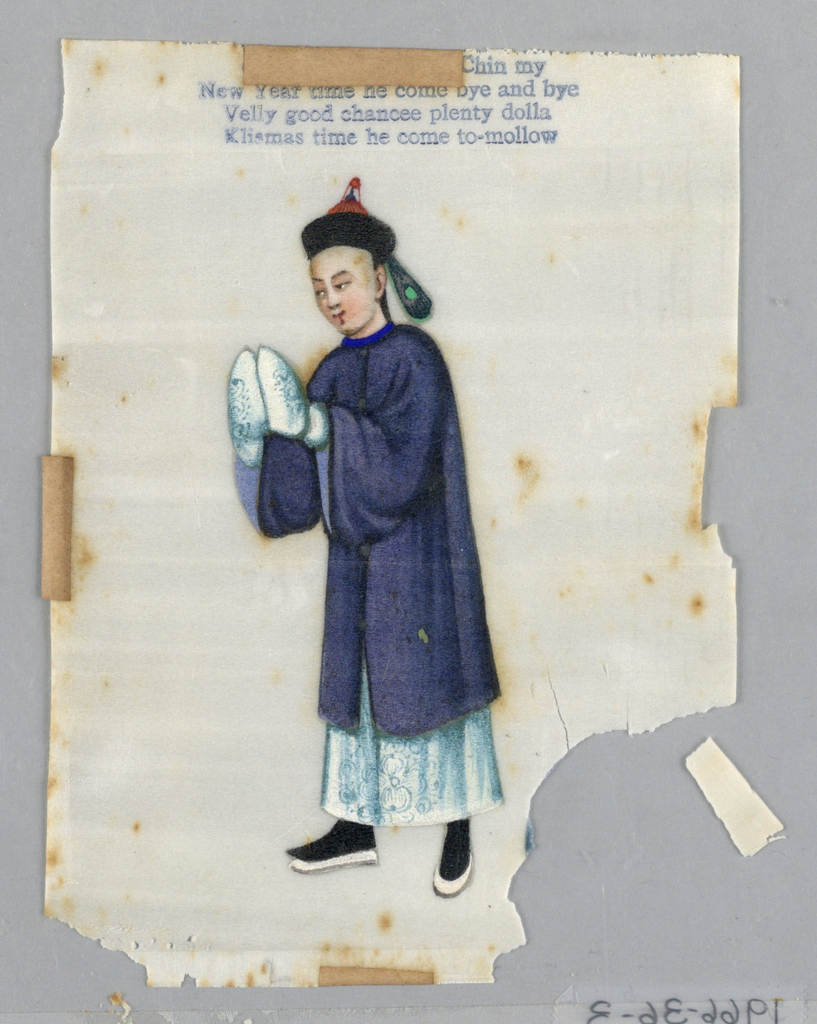 Chin my
New Year time he come bye and bye
Velly good chancee plenty dolla
Klismas time he come to-mollow
1966-36-3